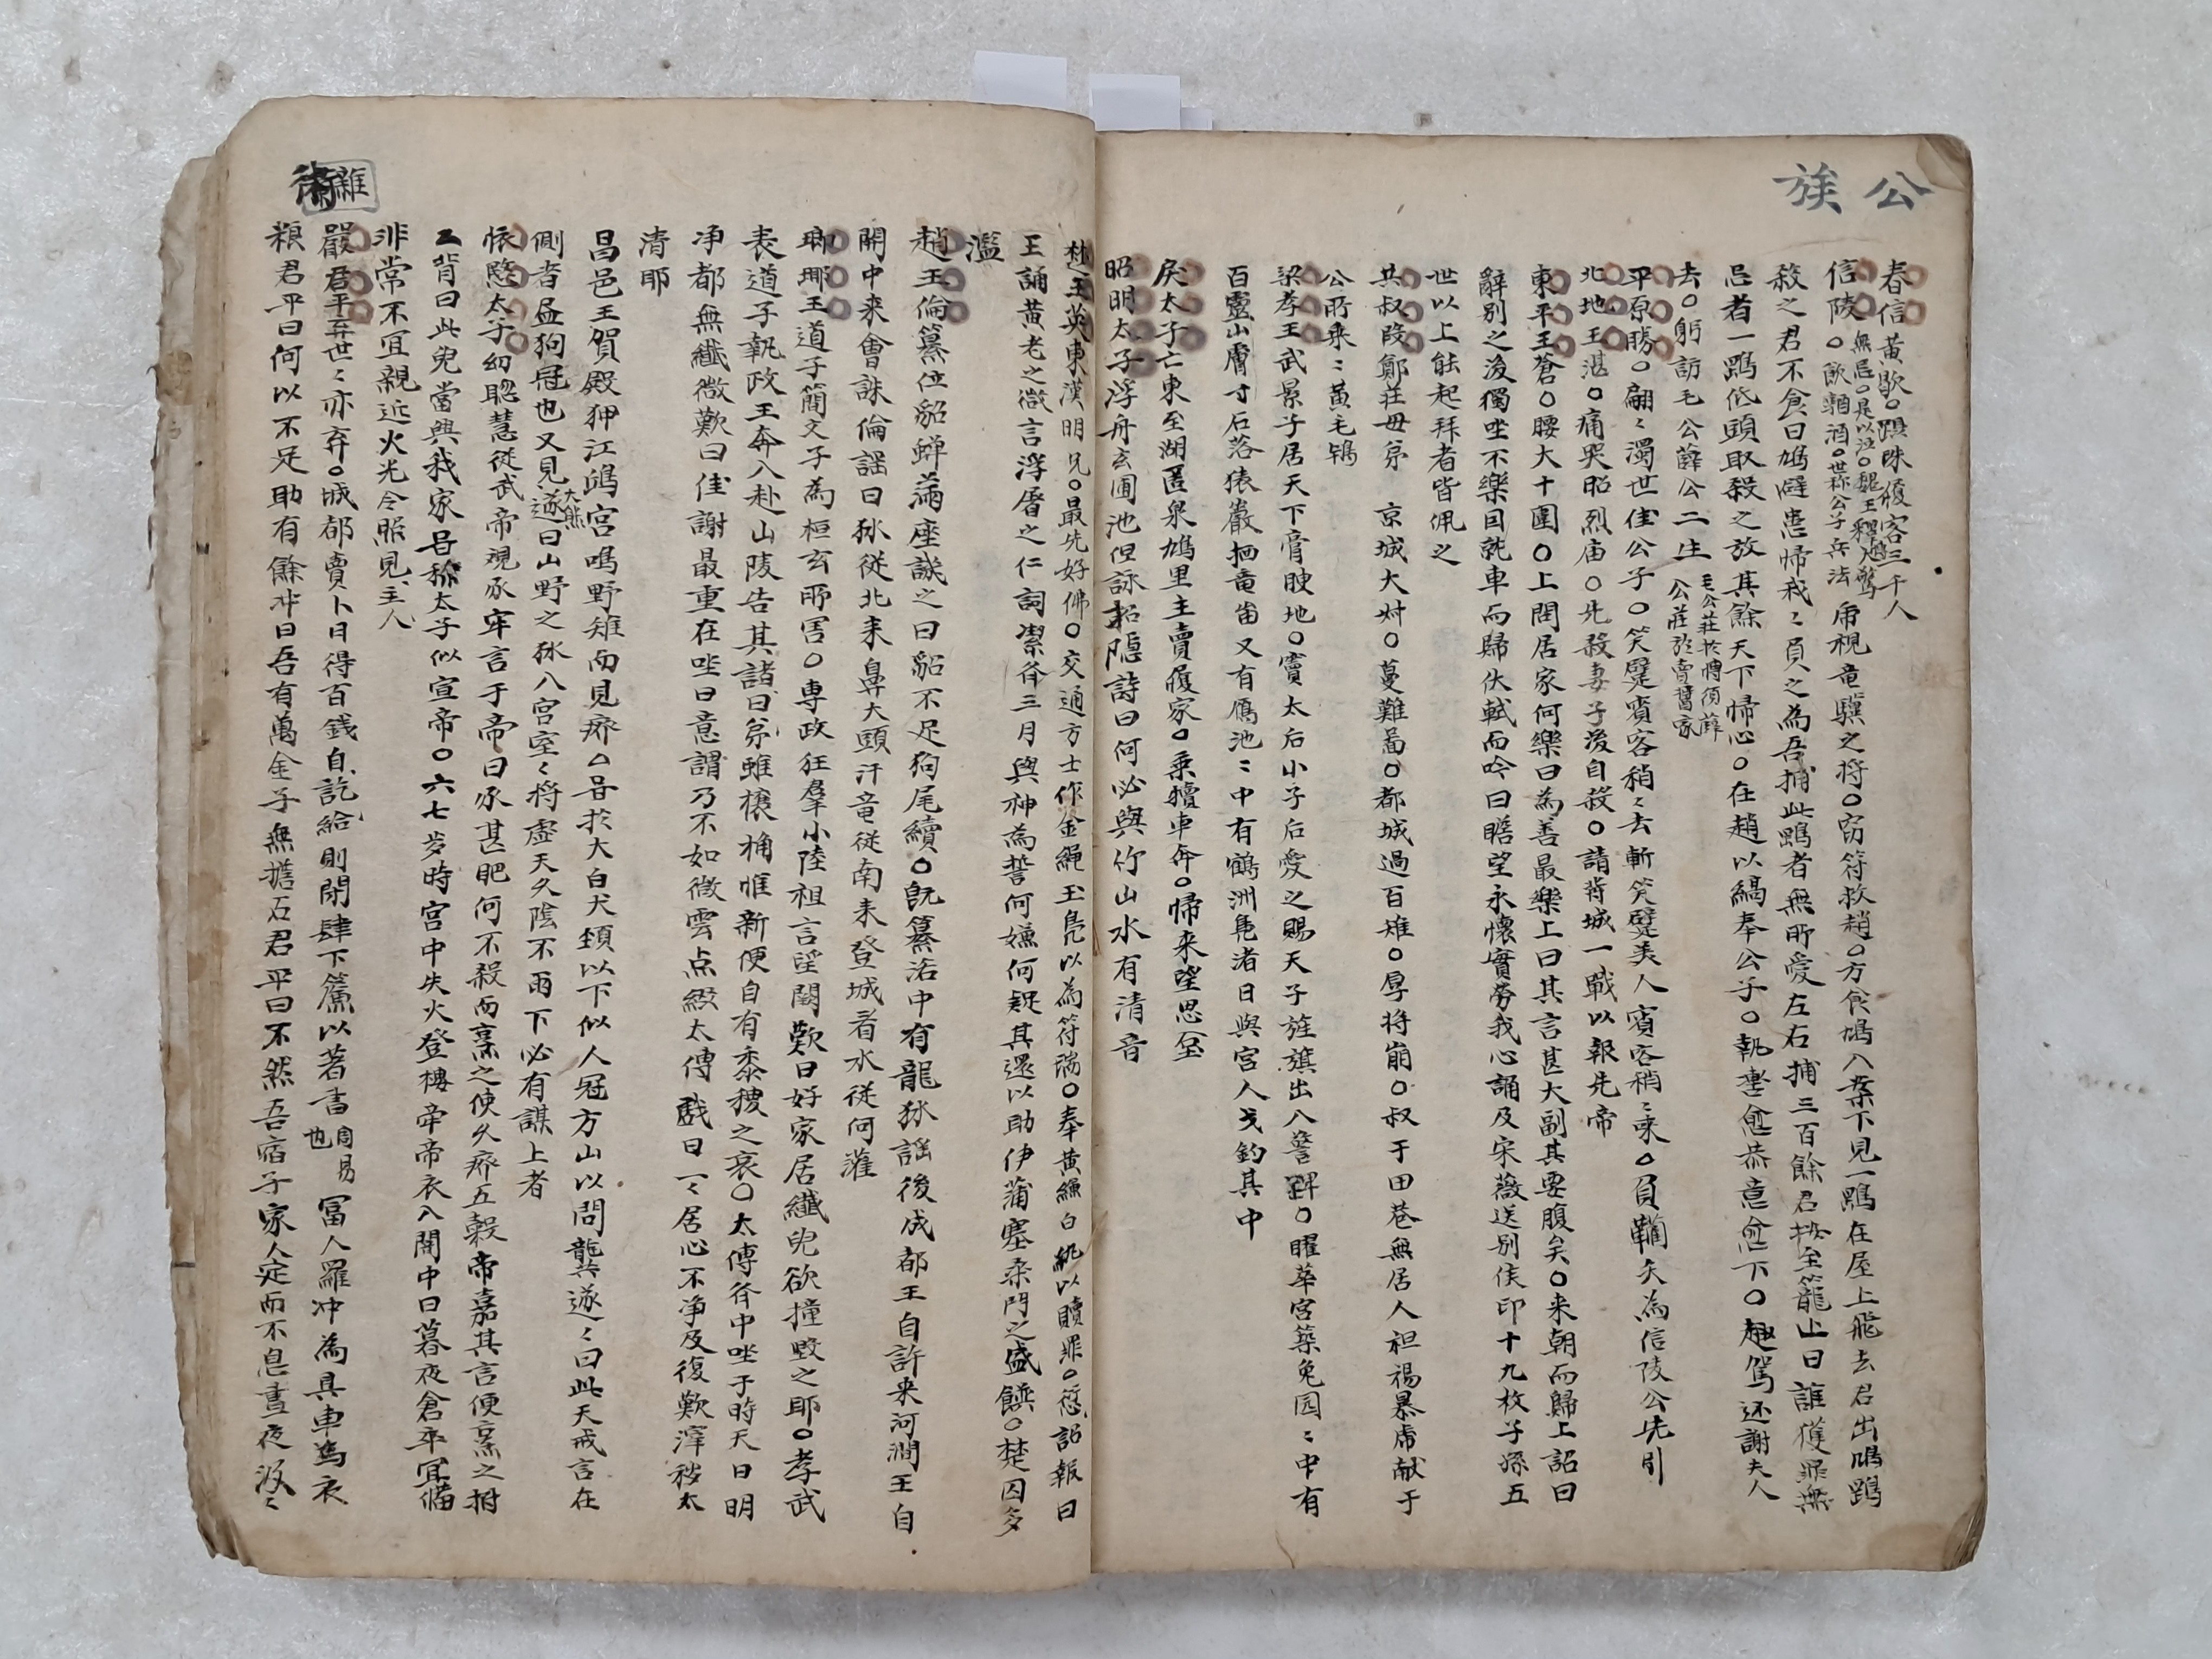 公族
春信黃歇○躡珠履客三千人
信陵 無忌○是以泣○魏王釋趙驚○飮酒○世称公子兵法 虎視竜驤之將○窃符救趙○方食鳩入案下見一鷂在屋上飛去君出鳩鷂
殺之君不食曰鳩避患帰我〻負之為吾捕此鷂者無所愛左右捕三百餘君按至籠上曰誰獲罪無
忌者一鷂低頭取殺之放其餘天下帰心○在趙以縞奉公子○執轡愈恭意愈下○趣駕还謝夫人
去○躬訪毛公薛公二生 毛公莊於博須薛公莊於賣醬家
平原勝○翩〻濁世佳公子○笑躄賓客稍〻去斬笑躄美人賓客稍〻来○負韊矢為信陵公先引
北地王湛○痛哭昭烈庙○先殺妻子後自殺○請背城一戰以報先帝
東平王蒼○腰大十圍○上問居家何樂曰為善最樂上曰其言甚大副其要腹矣○来朝而歸上詔曰
辭別之後獨坐不樂因就車而歸伏軾而吟曰瞻望永懷實勞我心誦及宋薇送別侯印十九枚子孫五
世以上能起拜者皆佩之
共叔段鄭莊母弟 京城大叔○蔓難啚○都城過百雉○厚将崩○叔于田巷無居人袒裼暴虎献于
公所乘〻黃毛鴇
梁孝王武景子居天下膏腴地○竇太后小子后愛之賜天子旌旗出入警蹕○曜華宮築兔园〻中有
百靈山膚寸石落猿巖栖竜岫又有鴈池〻中有鶴洲鳧渚日與宮人弋釣其中
戾太子亡東至湖匿泉鳩里主賣履家○乘犢車奔○帰来望思臺
昭明太子浮舟玄圃池但詠招隠詩曰何必與竹山水有清音
楚王英東漢明兄○最先好佛○交通方士作金龜玉鳧以為符瑞○奉黃縑白紈以贖罪○愆詔報曰
王誦黃老之微言浮屠之仁詞潔齐三月與神為誓何嫌何疑其還以助伊蒲塞桑門之盛饌○楚囚多
濫
趙王倫簒位貂蟬滿座諺之曰貂不足狗尾續○旣簒洛中有龍猕謡後成都王自許来河澗王自
関中来會誅倫謡曰猕從北来鼻大頭汗竜從南来登城看水從何灌
瑯琊王道子簡文子為桓玄所害○專政狂羣小陸祖言望闕歎曰好家居纖兒欲撞毀之耶○孝武
表道子執政王奔入赴山陵告其諸曰弟雖榱桷惟新便自有黍稷之哀○太傅齐中坐于時天日明
净都無纖微歎曰佳謝最重在坐曰意謂乃不如微雲点綴太傅戲曰〻居心不净及復歎滓秽太
清耶
昌邑王賀殿狎江鴻宮鳴野雉而見疥△甞於大白犬頚以下似人冠方山以問龔遂〻曰此天戒言在
側者盈狗冠也又見大熊遂曰山野之狖入宮室〻将虛天久陰不雨下必有謀上者
愍懐太子幼聰慧從武帝視豕牢言于帝曰豕甚肥何不殺而烹之使久疥五榖帝嘉其言便烹之拊
其背曰此兒當興我家甞称太子似宣帝○六七岁時宮中失火登樓帝帝衣入闇中曰暮夜倉卒宜備
非常不宜親近火光令照見主人
雜術
嚴君平弃世〻亦弃○城都賣卜日得百銭自訖給則閉肆下簾以著書 周易也 冨人羅冲為具車馬衣
粮君平曰何以不足助有餘冲曰吾有萬金子無擔石君平曰不然吾宿子家人定而不息晝夜汲〻